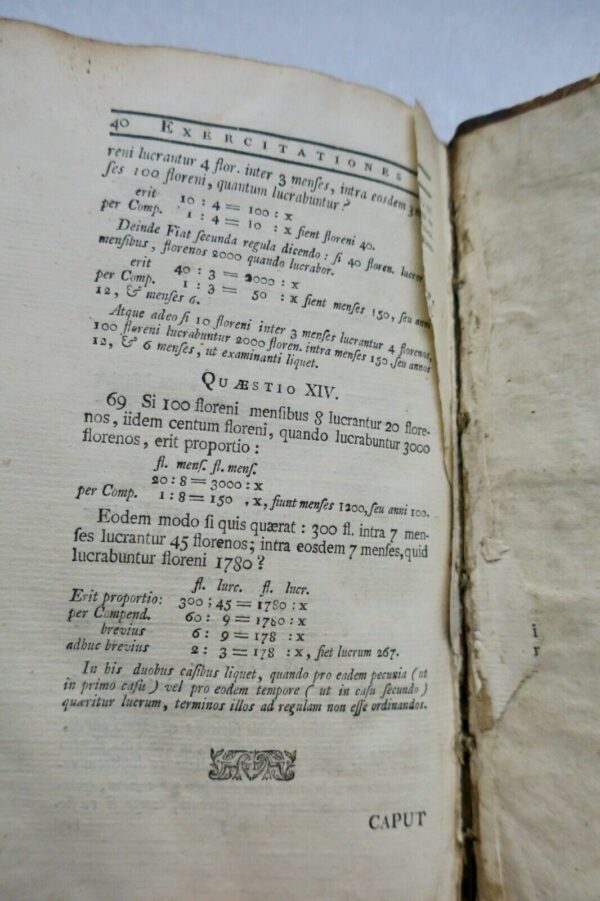 40 EXERCITATIONES
reni lucrantur 4 flor. inter 3 menſes, intra eosdem 3
ſes 100 floreni, quantum lucrabuntur?
erit 10 : 4 = 100 : x
per Comp. 1 : 4 = 10 : x fient floreni 40.
Deinde Fiat ſecunda regula dicendo: ſi 40 floren. lucror
menſibus, florenos 2000 quando lucrabor.
erit 40 : 3 = 2000 : x
per Comp. 1 : 3 = 50 : x fient menſes 150, ſeu anni
12, & menſes 6.
Atque adeo ſi 10 floreni inter 3 menſes lucrantur 4 florenos,
100 floreni lucrabuntur 2000 floren. intra menſes 150, ſeu annos
12, & 6 menſes, ut examinanti liquet.
QUÆSTIO XIV.
69 Si 100 floreni menſibus 8 lucrantur 20 flore-
nos, iidem centum floreni, quando lucrabuntur 3000
florenos, erit proportio:
fl. menſ. fl. menſ.
20 : 8 = 3000 : x
per Comp. 1 : 8 = 150 , x, fiunt menſes 1200, ſeu anni 100.
Eodem modo ſi quis quærat: 300 fl. intra 7 men-
ſes lucrantur 45 florenos; intra eosdem 7 menſes, quid
lucrabuntur floreni 1780?
fl. lurc. fl. lucr.
Erit proportio: 300 ; 45 = 1780 : x
per Compend. 60 : 9 = 1780 : x
brevius 6 : 9 = 178 : x
adhuc brevius 2 : 3 = 178 : x, fiet lucrum 267.
In his duobus caſibus liquet, quando pro eadem pecunia (ut
in primo caſu) vel pro eodem tempore (ut in caſu ſecundo)
quæritur lucrum, terminos illos ad regulam non eſſe ordinandos.
CAPUT